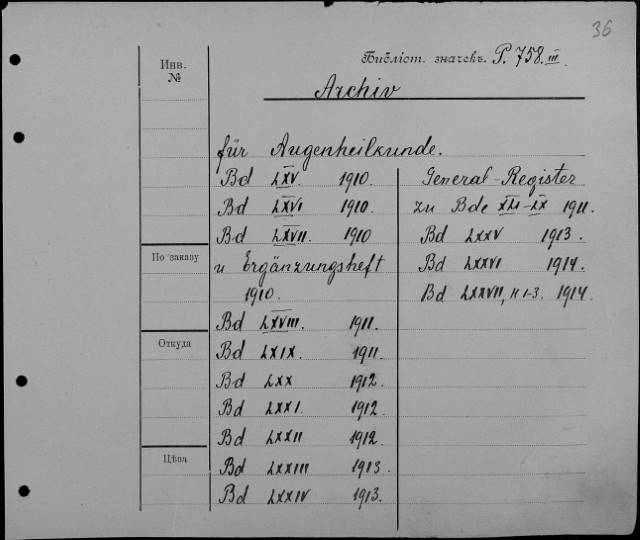 36
Инв.
№
Библіот. значекъ. P. 758. III.
Archiv
für Augenheilkunde.
Bd LXV. 1910.
Bd LXVI 1910.
Bd LXVII. 1910
По заказу
u Ergänzungsheft
1910.
Bd LXVIII. 1911.
Откуда
Bd LXIX. 1911.
Bd LXX 1912.
Bd LXXI. 1912.
Bd LXXII 1912.
Цѣна
Bd LXXIII 1913.
Bd LXXIV 1913.
General-Register
zu Bde XLI-LX 1911.
Bd LXXV 1913.
Bd LXXVI 1914.
Bd LXXVII, H 1-3. 1914.